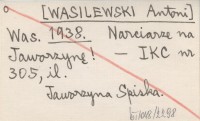 [WASILEWSKI Antoni]
Was. 1938. Narciarze na
Jaworzynę! — IKC nr
305, il.
Jaworzyna Spiska.